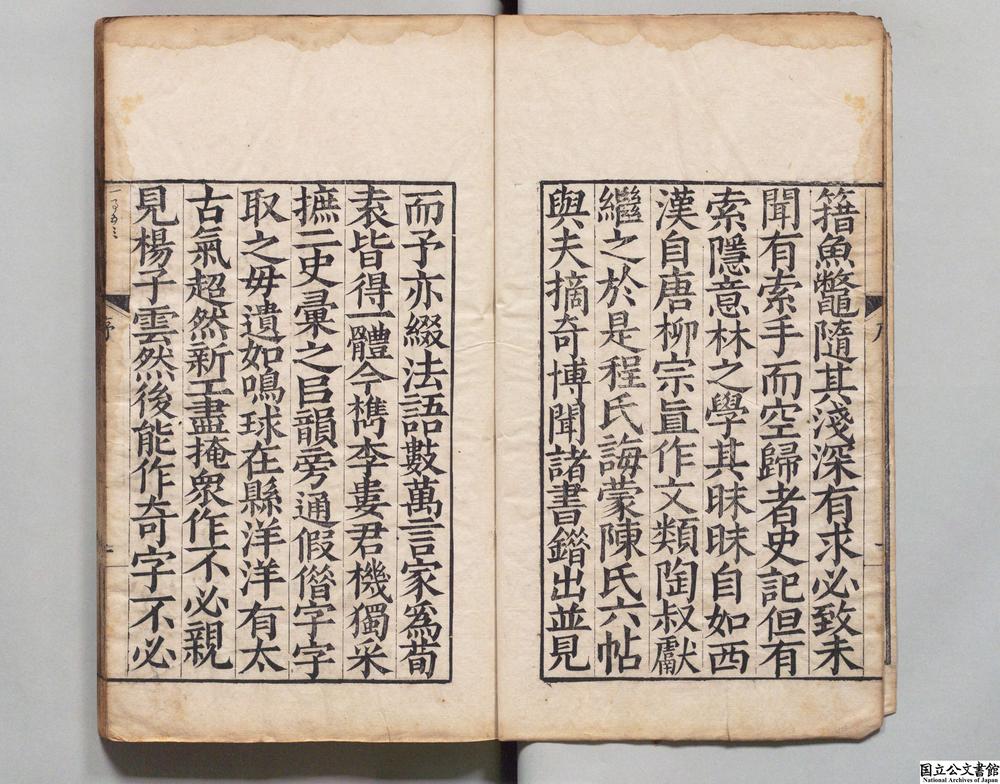 籍魚鼈隨其淺深有求必致未
聞有索手而空歸者史記但有
索隱意林之學其昧昧自如西
漢自唐柳宗直作文類陶叔獻
繼之於是程氏誨蒙陳氏六帖
與夫摘奇博聞諸書鐕出並見
而予亦綴法語數萬言家爲荀
袁皆得一體今檇李婁君機獨米
摭二史彙之巨韻旁通假僭字字
取之毋遺如鳴球在縣洋洋有太
古氣超然新工盡掩衆作不必親
見楊子雲然後能作奇字不必
序
国立公文書館
National Archives of Japan